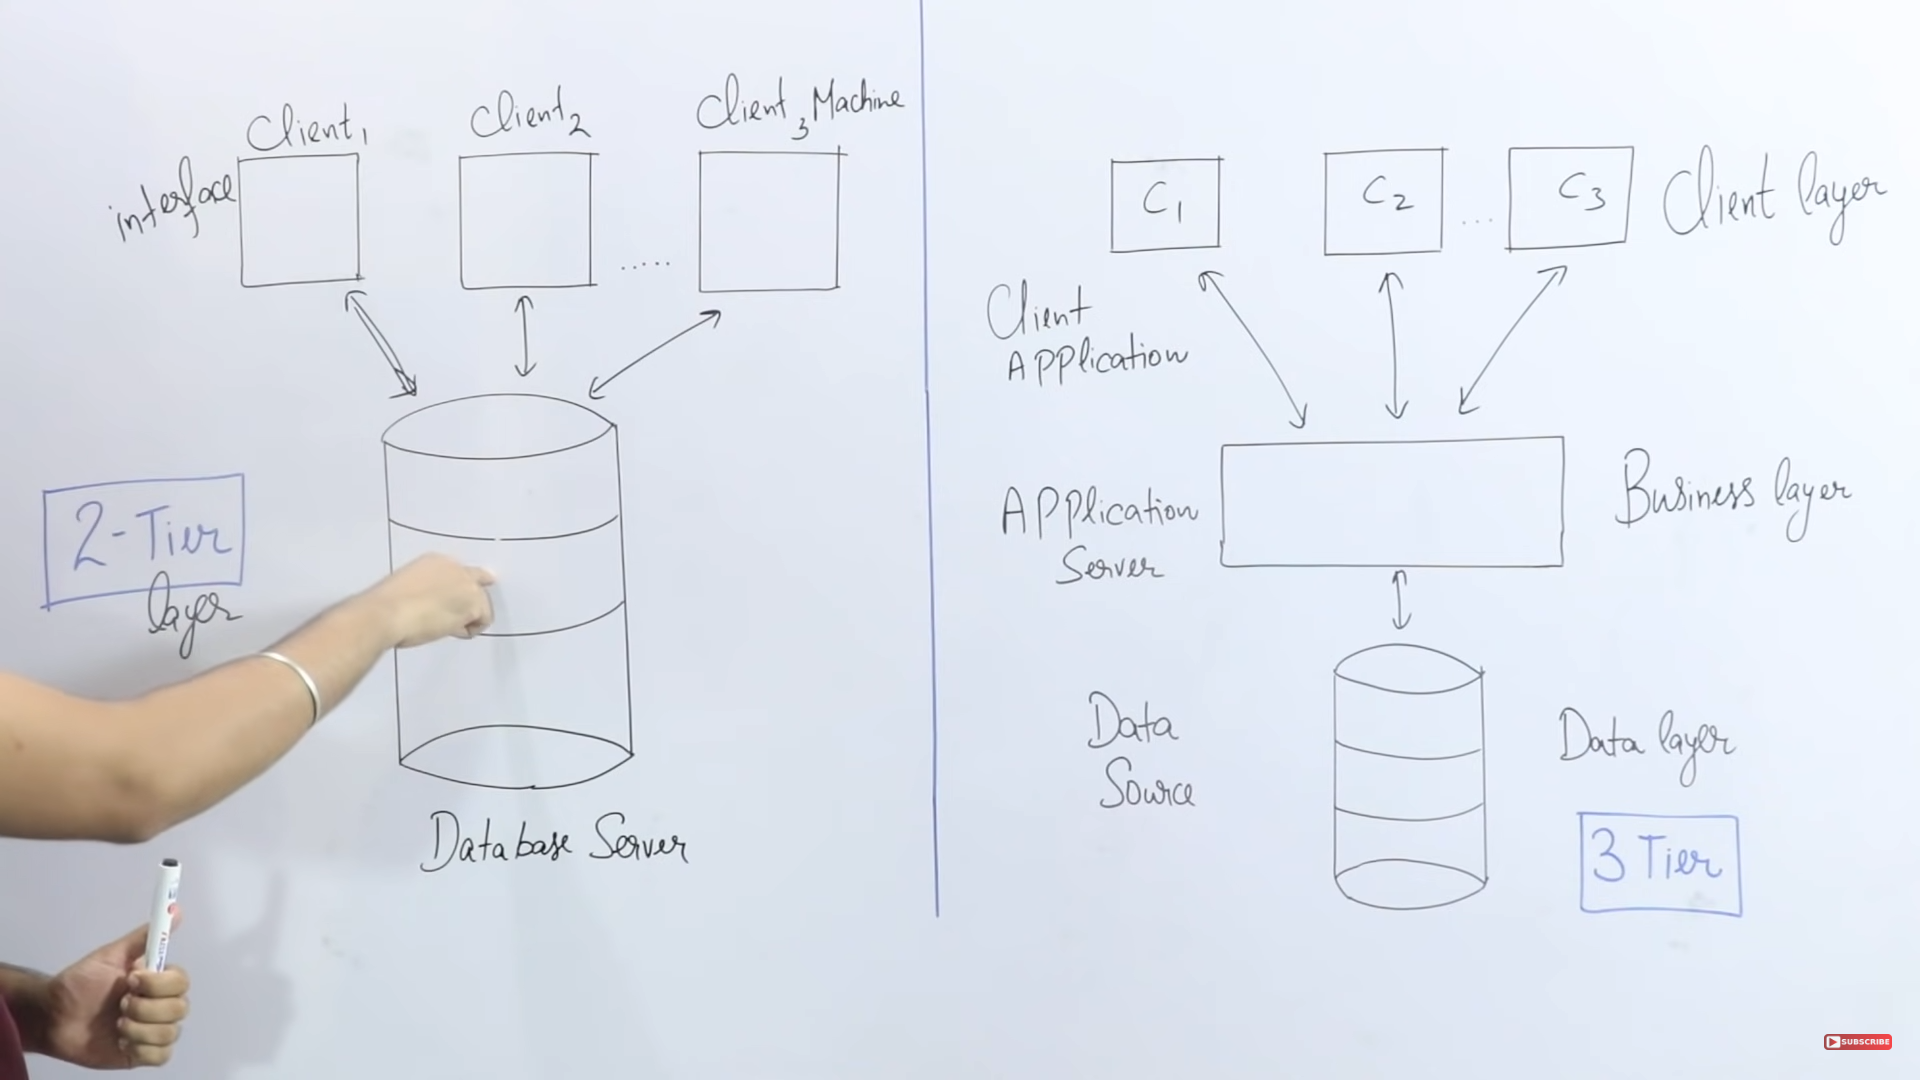 Client1
Client2
Client3 Machine
interface
2-Tier
layer
Database Server
C1
C2
C3
Client layer
Client
Application
Application
Server
Business layer
Data
Source
Data layer
3 Tier
SUBSCRIBE